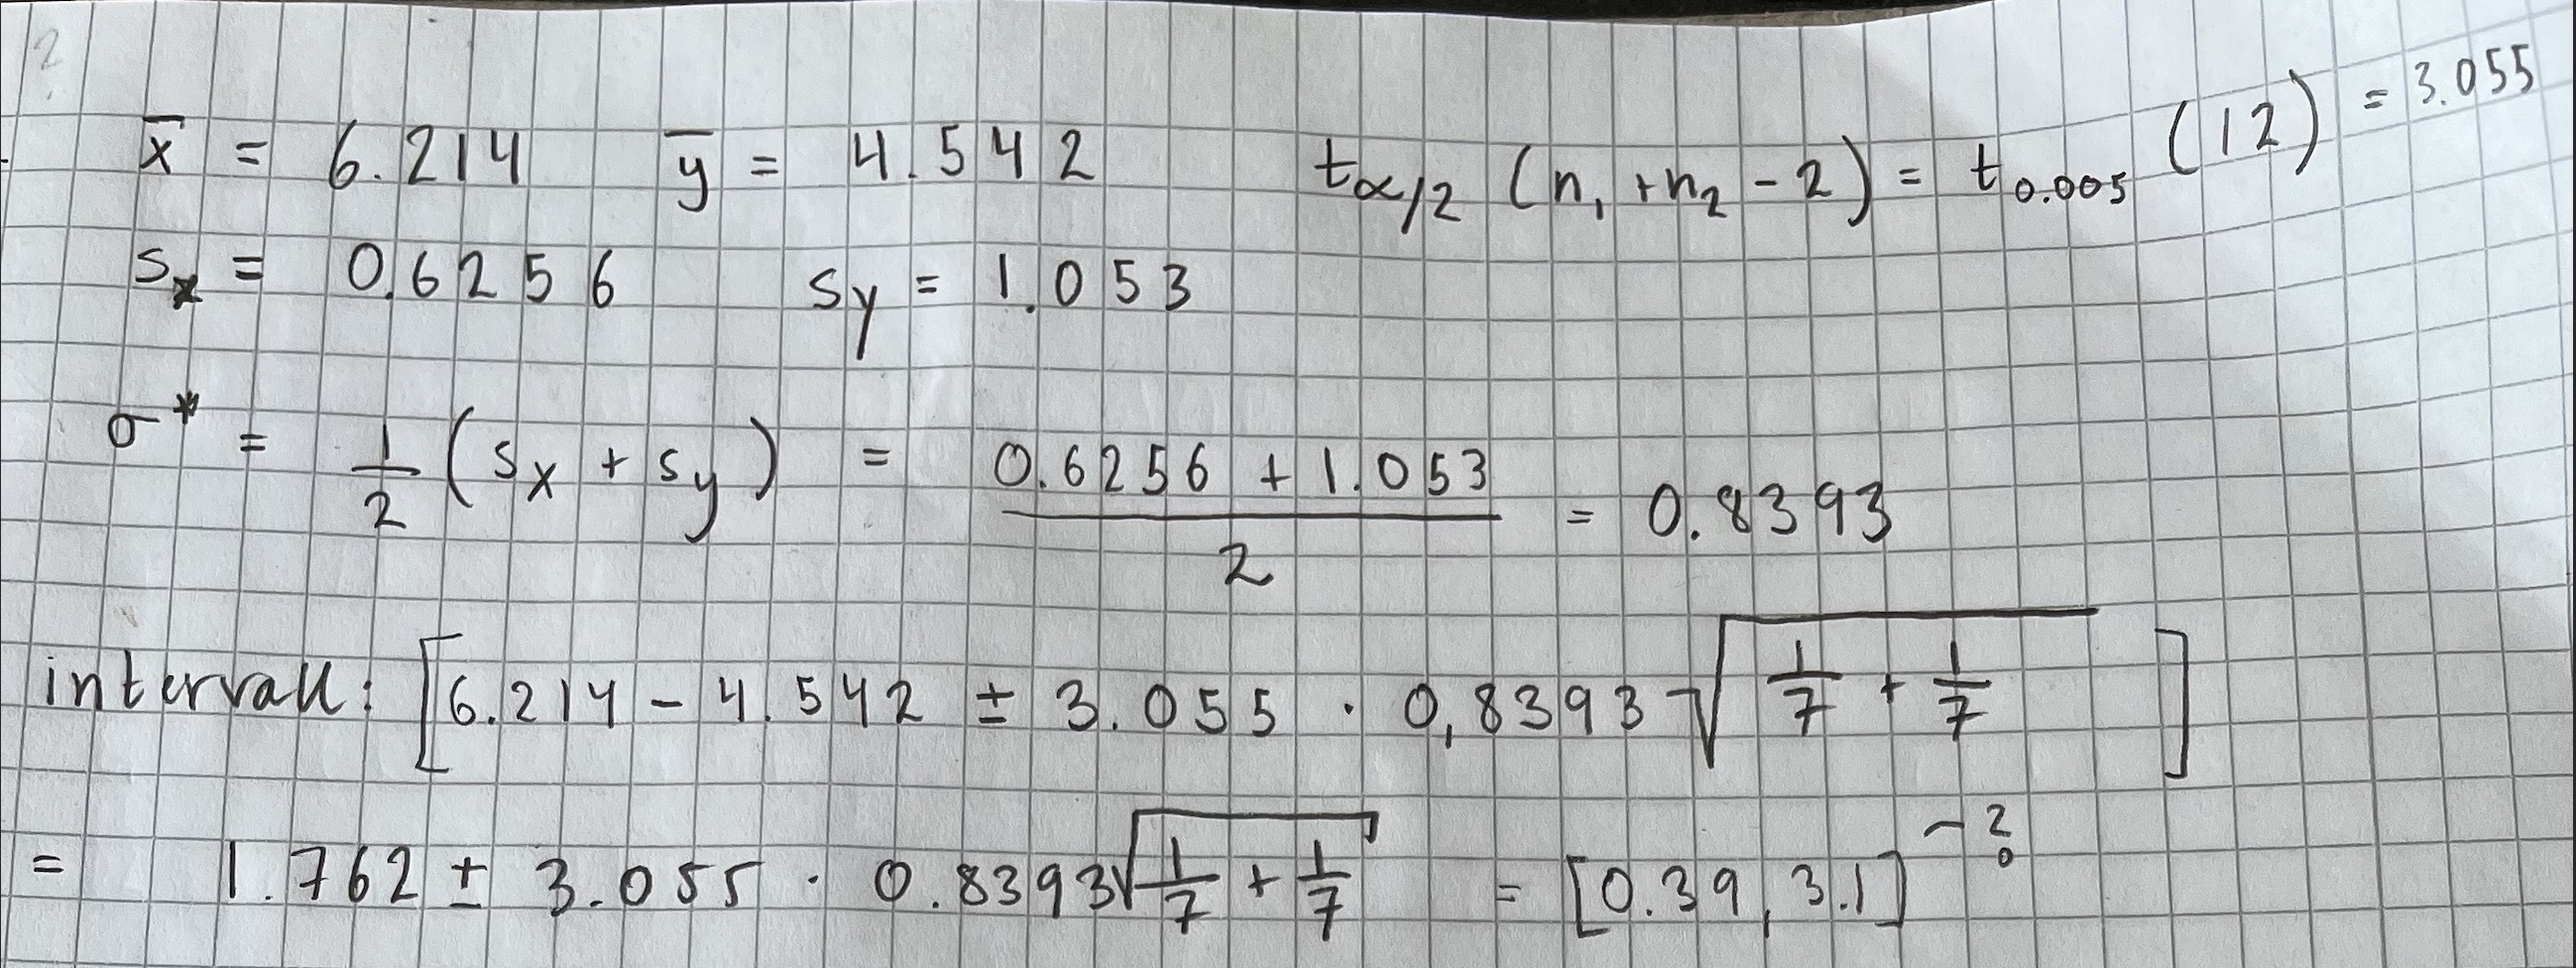 2
x̄ = 6.214 ȳ = 4.542 t_{α/2} (n₁ + n₂ - 2) = t_{0.005} (12) = 3.055
s_x = 0.6256 s_y = 1.053
σ* = 1/2 (s_x + s_y) = (0.6256 + 1.053)/2 = 0.8393
intervall: [6.214 - 4.542 ± 3.055 · 0,8393 √(1/7 + 1/7) ]
= 1.762 ± 3.055 · 0.8393 √(1/7 + 1/7) = [0.39, 3.1] ~ ?